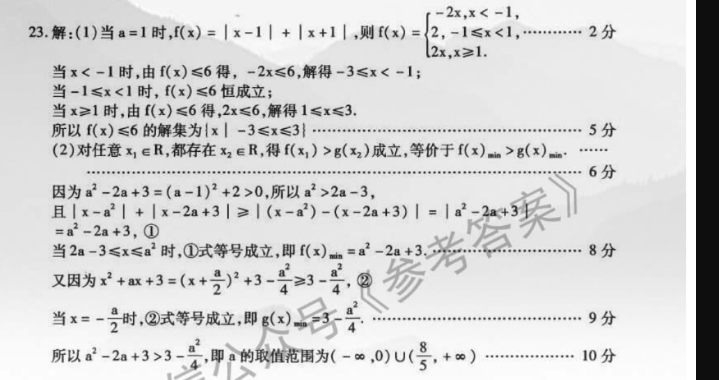 -2x, x < -1,
23. 解:(1)当 a=1 时,f(x) = |x-1| + |x+1|,则 f(x) = { 2, -1≤x<1, ………… 2 分
2x, x≥1.
当 x < -1 时,由 f(x)≤6 得, -2x≤6,解得 -3≤x< -1;
当 -1≤x<1 时, f(x)≤6 恒成立;
当 x≥1 时,由 f(x)≤6 得,2x≤6,解得 1≤x≤3.
所以 f(x)≤6 的解集为{x | -3≤x≤3} ………… 5 分
(2)对任意 x₁∈R,都存在 x₂∈R,得 f(x₁) >g(x₂)成立,等价于 f(x)min >g(x)min. ……
………… 6 分
因为 a² -2a+3 = (a-1)² +2 >0,所以 a² >2a-3,
且 |x-a²| + |x-2a+3| ≥ |(x-a²) -(x-2a+3)| = |a² -2a+3|
=a² -2a+3, ①
当 2a-3≤x≤a² 时,①式等号成立,即 f(x)min =a² -2a+3. ………… 8 分
又因为 x² +ax+3 = (x + a/2)² +3 - a²/4 ≥3 - a²/4, ②
当 x = - a/2 时,②式等号成立,即 g(x)min =3 - a²/4. ………… 9 分
所以 a² -2a+3 >3 - a²/4,即 a 的取值范围为( -∞ ,0) ∪( 8/5, +∞ ) ………… 10 分
公众号《参考答案》